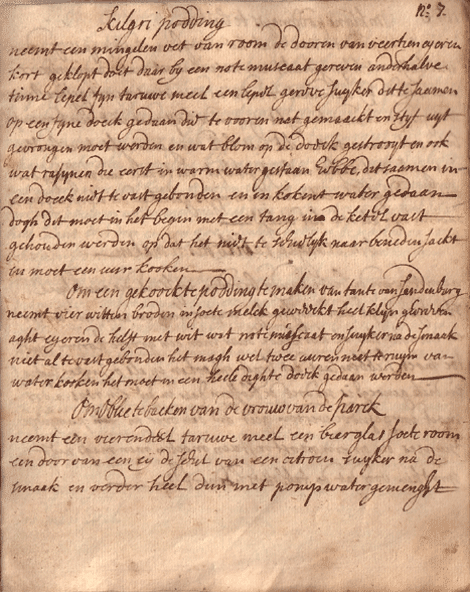 No: 7.
kilgri podding
neemt een mingelen vet van room de dooren van veertien eyeren
kort geklopt doet daar by een note muscaat gereven anderhalve
tinne lepel fyn taruwe meel een lepel gerove suyker dit te saamen
op een fyne doeck gedaan die te vooren nat gemaackt en styf uyt
gevrongen moet werden en wat blom op de doeck gestrooyt en ook
wat rasynen die eerst in warm water gestaan hebbe, dit saemen in
een doeck niet te vast gebonden en in kokent water gedaan
dogh dit moet in het begin met een tang in de ketel vast
gehouden werden op dat het niet te schielyk naar beneden sackt
en moet een uur kooken
Om een gekoockte podding te maken van tante van Sandenburg
neemt vier witten broden in soete melck geweeckt heel kleyn gewreven
aght eyeren de helft met wit wat note muscaat en suyker na de smaak
niet al te vast gebonden het magh wel twee uuren met ruym van
water kooken het moet in een heele dighte doeck gedaan werden
Om oblie te backen van de vrouw van de parck
neemt een vierendeel taruwe meel een bierglas soete room
een door van een ey de schil van een citroen suyker na de
smaak en verder heel dun met pomp water gemenght